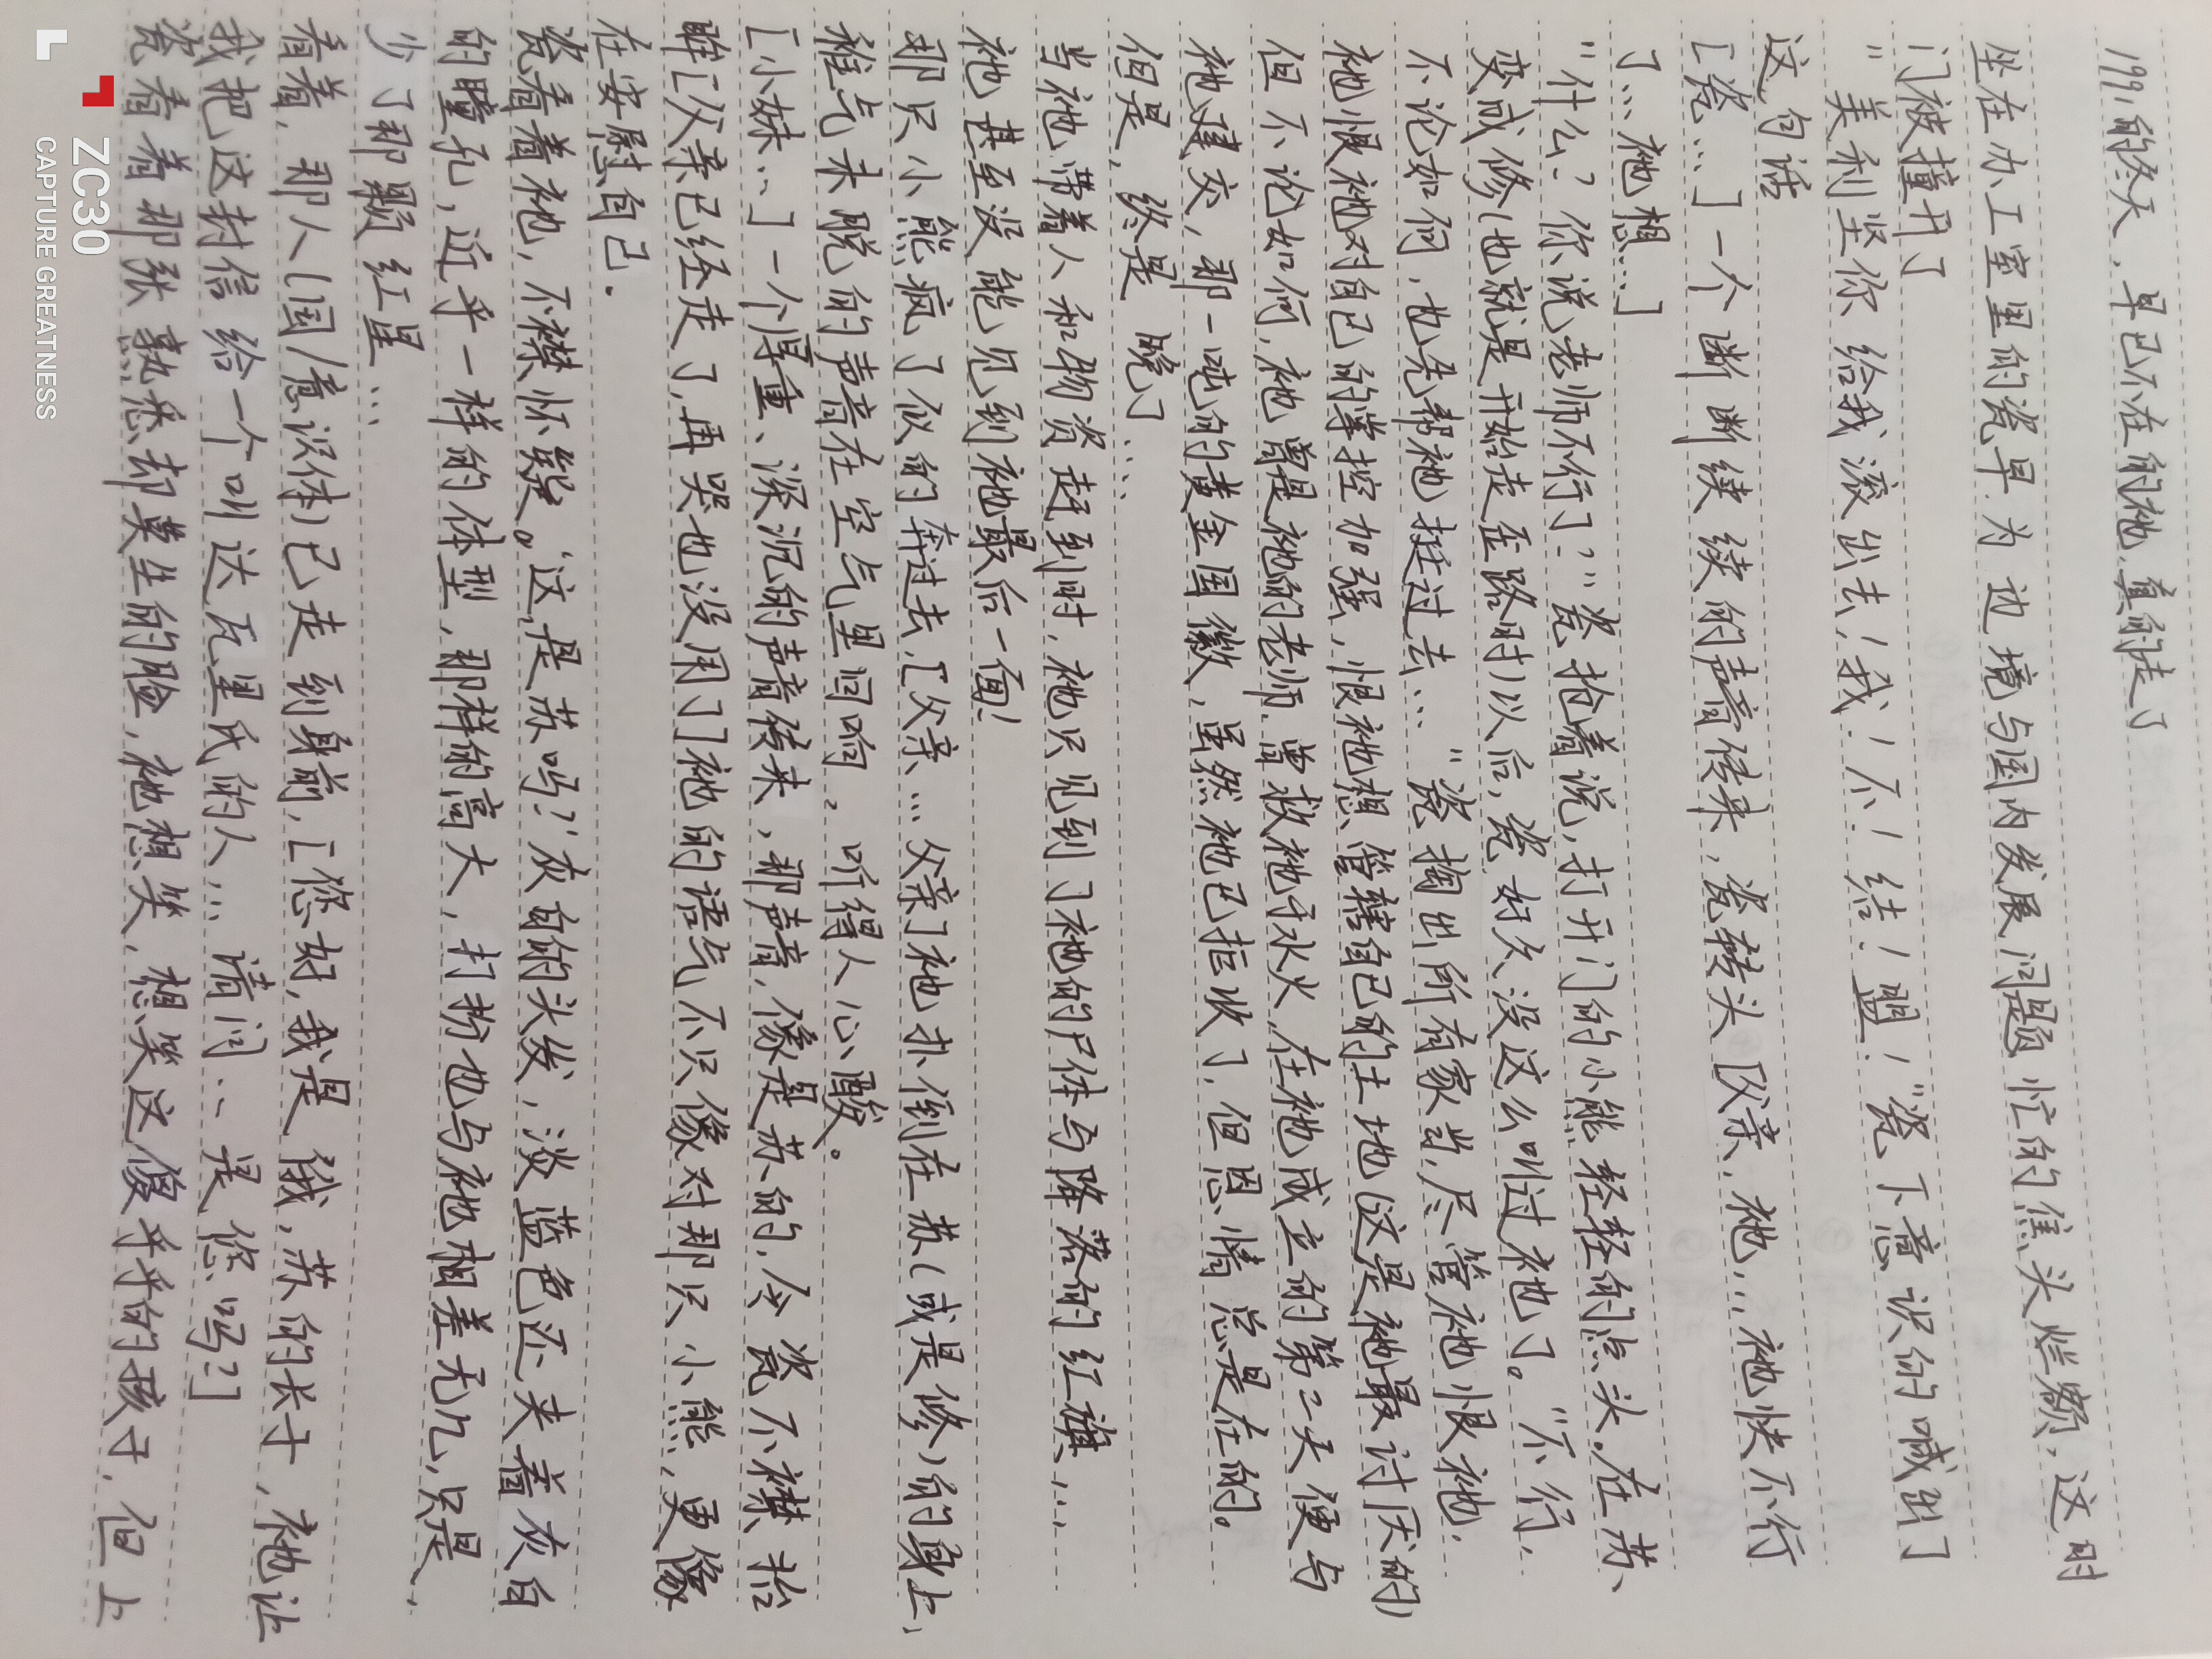 1991的冬天，早已不在的祂，真的走了
坐在办工室里的瓷早为边境与国内发展问题忙的焦头烂额，这时
门被撞开了
"美利坚你给我滚出去！我！不！结！盟！"瓷下意识的喊出了
这句话
[瓷…]一个断断续续的声音传来，瓷转头[父亲，祂…祂快不行
了…祂想…]
"什么？你说老师不行了？"瓷抢着说，打开门的小熊轻轻的点头。在苏、
变成修(也就是开始走歪路时)以后，瓷好久没这么叫过祂了。"不行，
不论如何，也先帮祂挺过去…"瓷掏出所有家当，尽管祂恨祂，
祂恨祂对自己的掌控加强，恨祂想管辖自己的土地(这是祂最讨厌的)
但不论如何，祂曾是祂的老师，曾救祂于水火，在祂成立的第二天便与
祂建交，那一吨的黄金国徽，虽然祂已拒收了，但恩情总是在的。
但是，终是晚了……
当祂带着人和物资赶到时，祂只见到了祂的尸体与降落的红旗…
祂甚至没能见到祂最后一面！
那只小熊疯了似的奔过去，[父亲…父亲]祂扑倒在苏(或是修)的身上，
稚气未脱的声音在空气里回响，听得人心酸。
[小妹…]一个厚重、深沉的声音传来，那声音，像是苏的，令瓷不襟抬
眸[父亲已经走了，再哭也没用了]祂的语气不只像对那只小熊，更像
在安慰自己.
瓷看着祂，不襟怀疑。这是苏吗？灰白的头发，淡蓝色还夹着灰白
的瞳孔，近乎一样的体型，那样的高大，打扮也与祂相差无几，只是，
少了那颗红星…
看着，那人(国/意识体)已走到身前，[您好，我是俄，苏的长子，祂让
我把这封信给一个叫达瓦里氏的人…请问…是您吗？]
瓷看着那张熟悉却莫生的脸，祂想笑，想笑这傻乎乎的孩子，但上
ZC30
CAPTURE GREATNESS